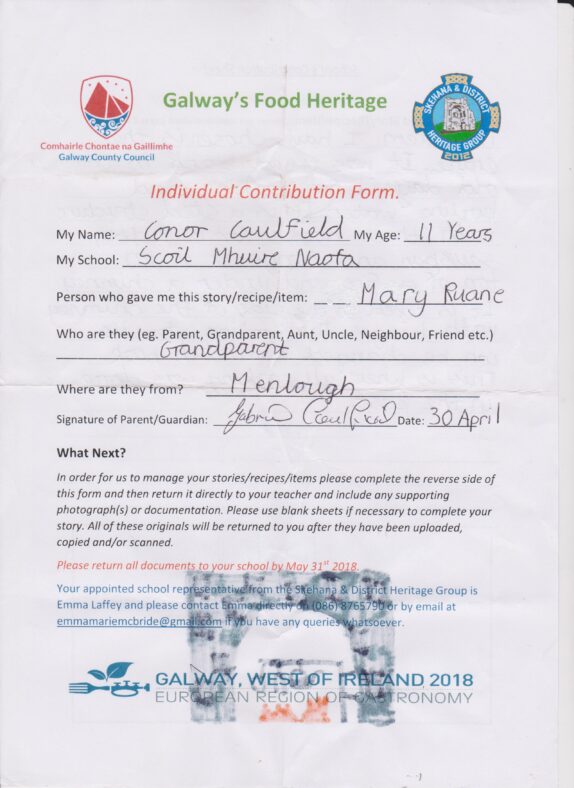 Galway's Food Heritage
SKEHANA & DISTRICT
HERITAGE GROUP
2012
Comhairle Chontae na Gaillimhe
Galway County Council
Individual Contribution Form.
My Name: Conor Caulfield My Age: 11 Years
My School: Scoil Mhuire Naofa
Person who gave me this story/recipe/item: Mary Ruane
Who are they (eg. Parent, Grandparent, Aunt, Uncle, Neighbour, Friend etc.)
Grandparent
Where are they from? Menlough
Signature of Parent/Guardian: Caulfield Date: 30 April
What Next?
In order for us to manage your stories/recipes/items please complete the reverse side of
this form and then return it directly to your teacher and include any supporting
photograph(s) or documentation. Please use blank sheets if necessary to complete your
story. All of these originals will be returned to you after they have been uploaded,
copied and/or scanned.
Please return all documents to your school by May 31st 2018.
Your appointed school representative from the Skehana & District Heritage Group is
Emma Laffey and please contact Emma directly on (086) 8765790 or by email at
emmamariemcbride@gmail.com if you have any queries whatsoever.
GALWAY, WEST OF IRELAND 2018
EUROPEAN REGION OF GASTRONOMY